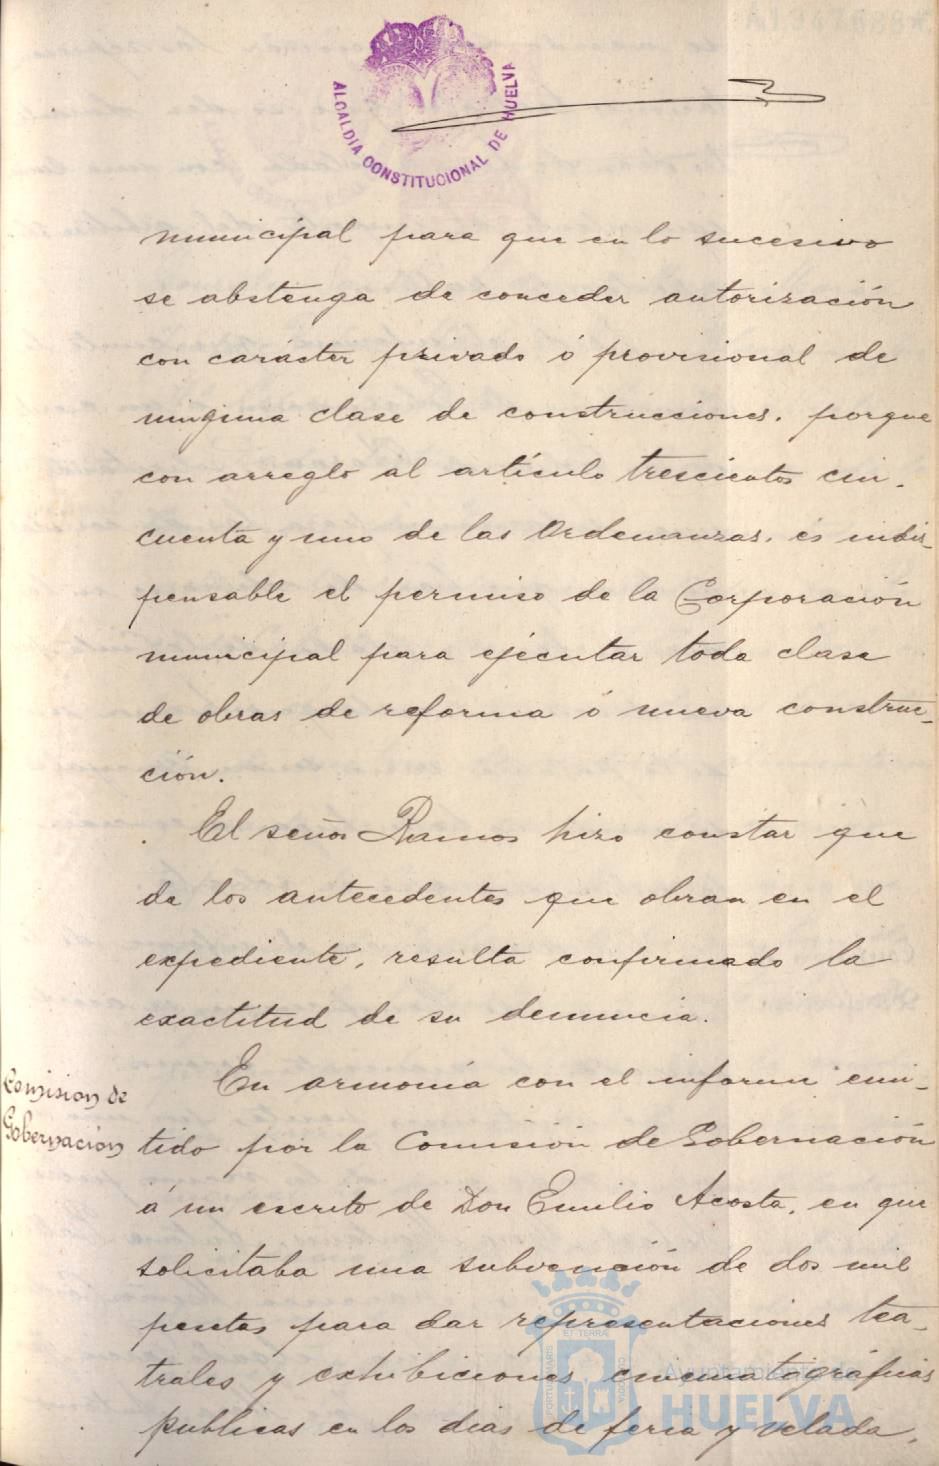 ALCALDIA CONSTITUCIONAL DE HUELVA
municipal para que en lo sucesivo
se abstenga de conceder autorización
con carácter privado ó provisional de
ninguna clase de construcciones, porque
con arreglo al artículo trescientos cin-
cuenta y uno de las Ordenanzas, és indis-
pensable el permiso de la Corporación
municipal para ejécutar toda clase
de obras de reforma ó nueva construc-
ción.
El señor Ramos hizo constar que
de los antecedentes que obran en el
expediente, resulta confirmado la
exactitud de su denuncia.
Comision de
Gobernación
En armonía con el informe emi-
tido por la Comisión de Gobernación
á un escrito de Don Emilio Acosta, en que
solicitaba una subvención de dos mil
pesetas para dar representaciones tea-
trales y exhibiciones cinematográficas
publicas en los dias de feria y velada,
Ayuntamiento de
HUELVA